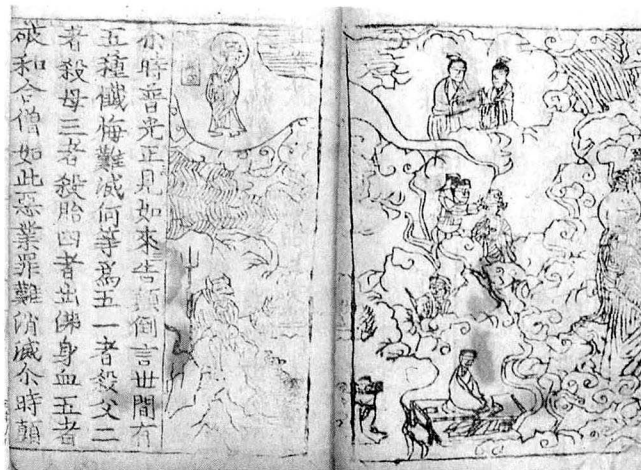 尒時普光正見如來告顛倒言世間有
五種懺悔難滅何等爲五一者殺父二
者殺母三者殺胎四者出佛身血五者
破和合僧如此惡業罪難消滅尒時顛